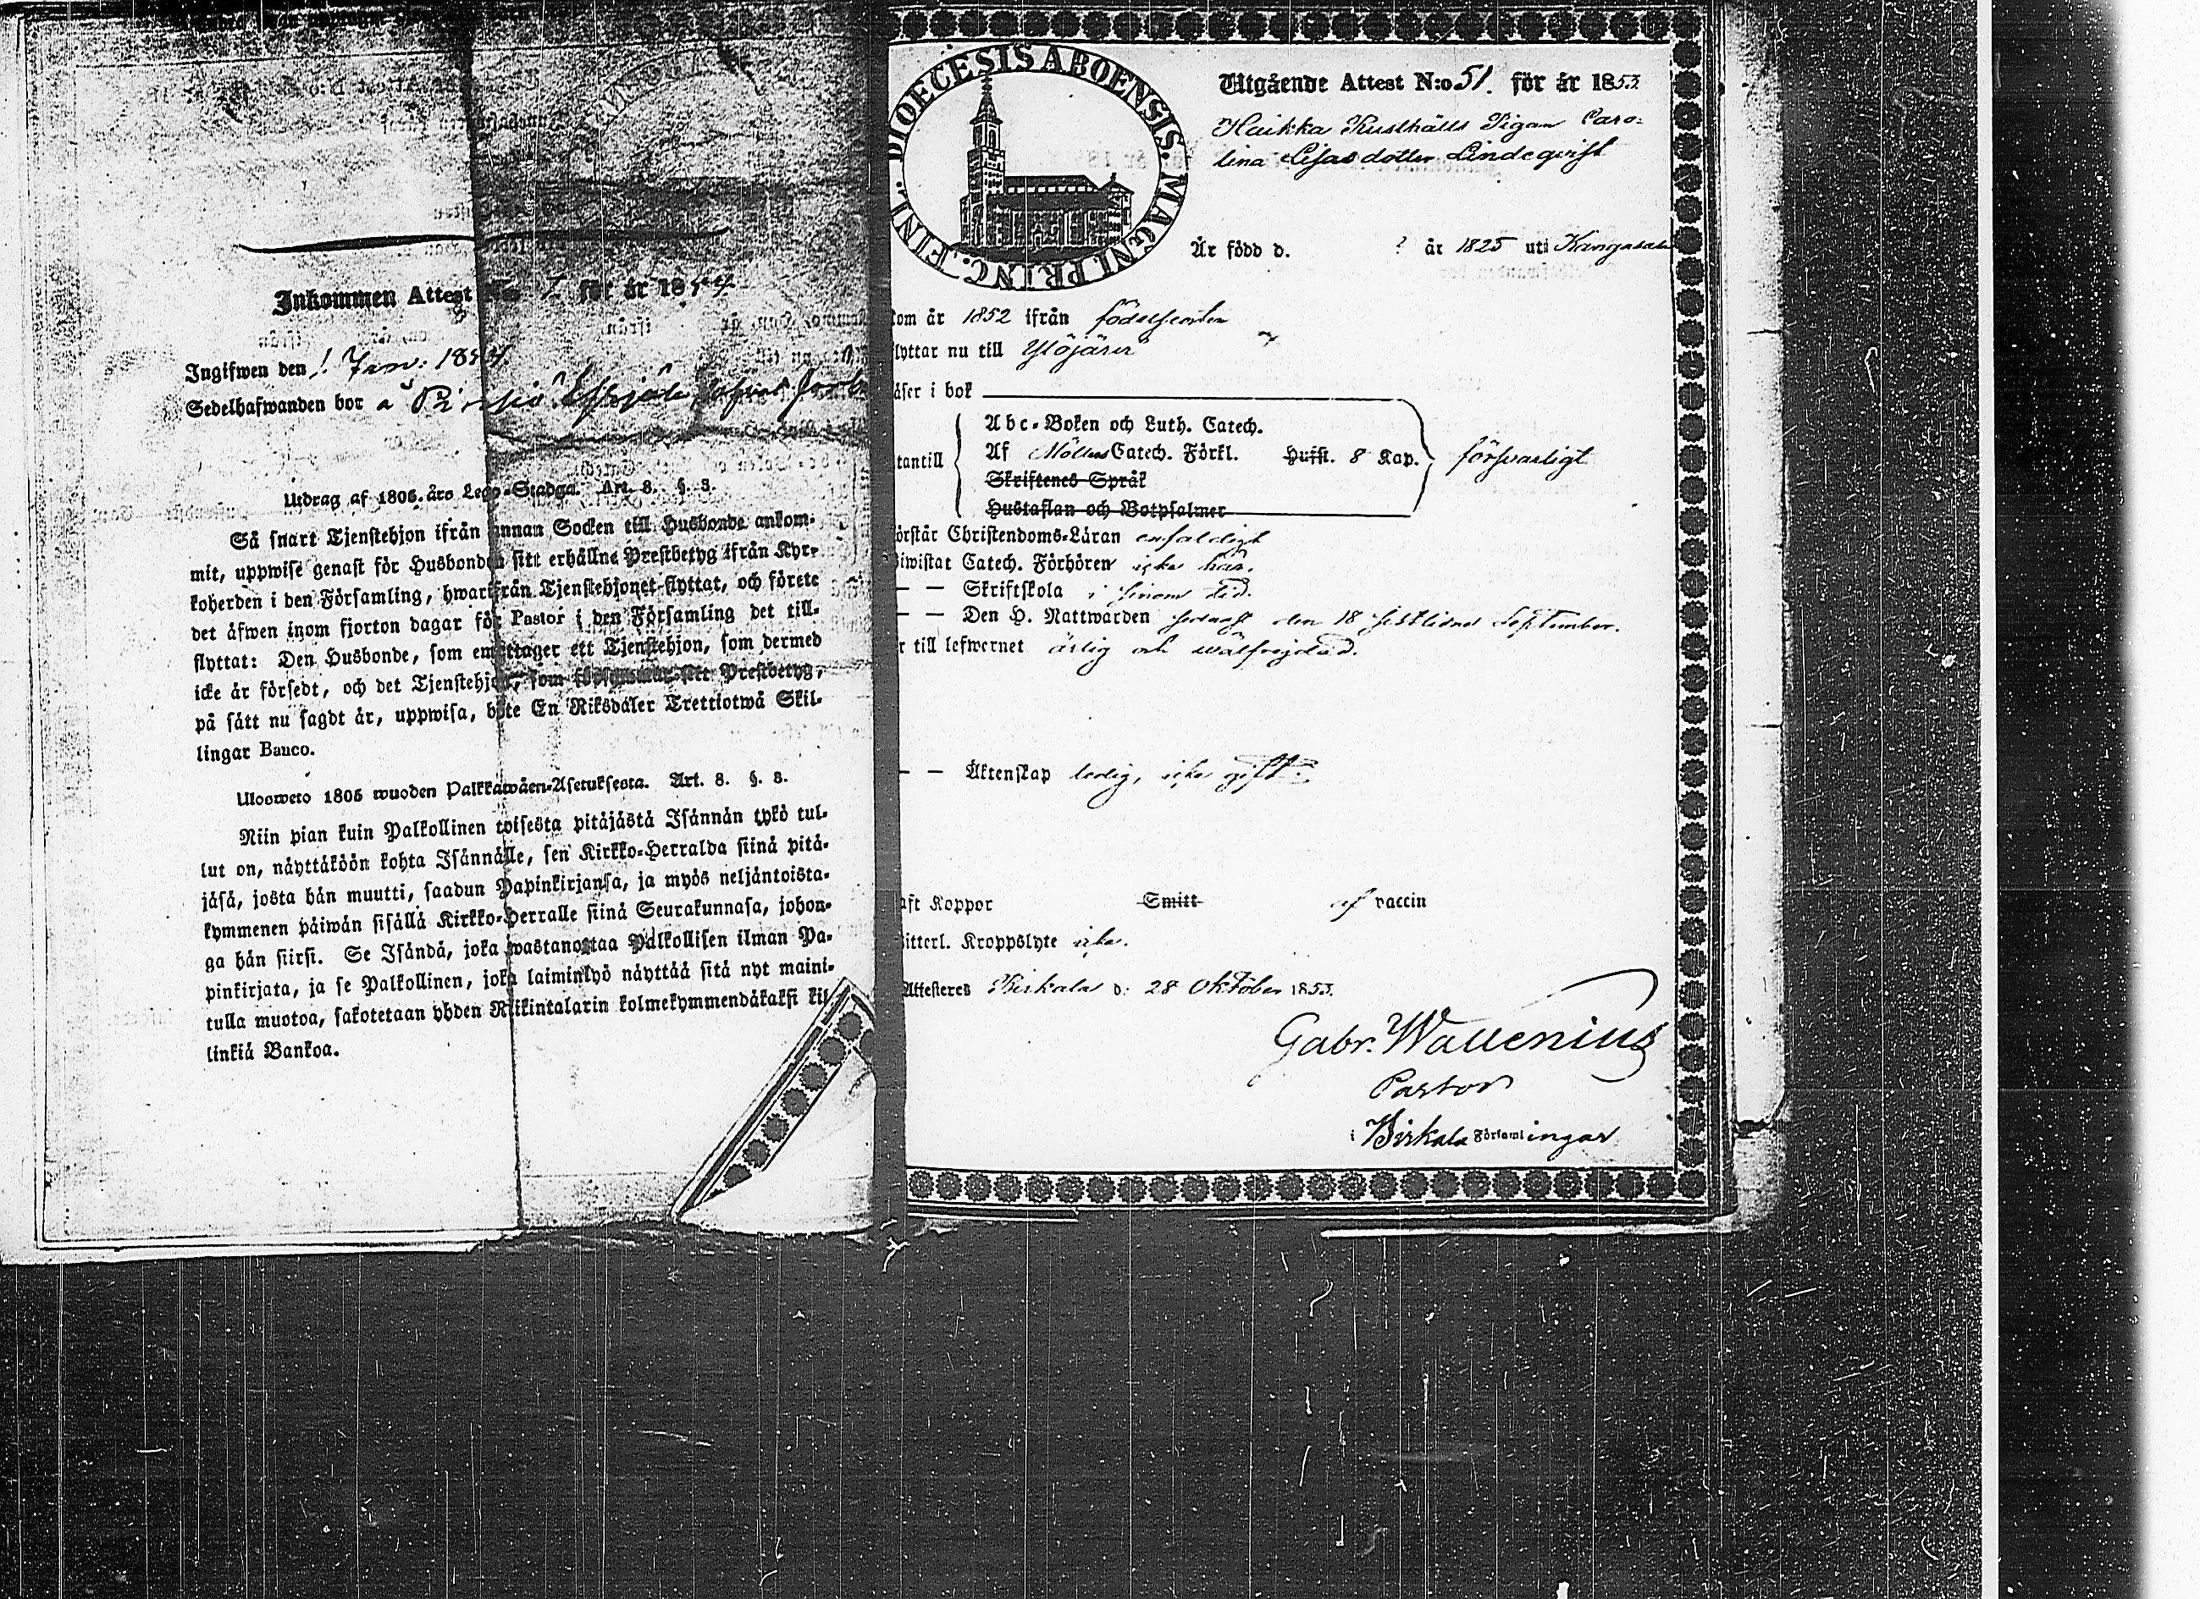 Inkommen Attest N:o 1. för år 1854
Ingifwen den 1. Jan: 1854.
Sedelhafwanden bor å
Utdrag af 1805. års Lego-Stadga. Art. 8. §. 8.
Så snart Tjenstehjon ifrån annan Socken till Husbonde ankom-
mit, uppwise genast för Husbonden sitt erhållne Prestbetyg ifrån Kyr-
koherden i den Församling, hwarifrån Tjenstehjonet flyttat, och förete
det äfwen inom fjorton dagar för Pastor i den Församling det till-
flyttat: Den Husbonde, som emottager ett Tjenstehjon, som dermed
icke är försedt, och det Tjenstehjon, som försummar sitt Prestbetyg,
på sätt nu sagdt är, uppwisa, böte En Riksdaler Trettiotwå Skil-
lingar Banco.
Ulosweto 1805 wuoden Palkkawäen-Asetuksesta. Art. 8. §. 8.
Niin pian kuin Palkollinen toisesta pitäjästä Isännän tykö tul-
lut on, näyttäköön kohta Isännälle, sen Kirkko-Herralda siinä pitä-
jäsä, josta hän muutti, saadun Papinkirjansa, ja myös neljäntoista-
kymmenen päiwän sisällä Kirkko-Herralle siinä Seurakunnasa, johon-
ga hän siirsi. Se Isändä, joka wastanottaa Palkollisen ilman Pa-
pinkirjata, ja se Palkollinen, joka laiminlyö näyttää sitä nyt maini-
tulla muotoa, sakotetaan yhden Riikintalarin kolmekymmendäkaksi kil
linkiä Bankoa.
DIOECESIS ABOENSIS. MAGNI PRINC. FINL.
Utgående Attest N:o 51. för år 1853
Haikka Rusthålls Pigan Caro-
lina Lisasdotter Lindeqvist
Är född d. ? år 1825 uti Kangasala
kom år 1852 ifrån födelseorten
lyttar nu till Ylöjärvi
äser i bok
Abc-Boken och Luth. Catech.
tantill Af Möllers Catech. Förkl. Husst. 8 Kap. försvarligt
Skriftenes Språk
Hustaflan och Botpsalmer
örstår Christendoms-Läran enfaldigt
iwistat Catech. Förhören icke här.
— — Skriftskola i sinom tid.
— — Den H. Nattwarden senast den 18 sistlidne September.
r till lefwernet ärlig och wälfrejdad.
— — Äktenskap ledig, icke gift.
aft Koppor Smitt af vaccin
itterl. Kroppslyte icke.
Attesteres Birkala d: 28 Oktober 1853.
Gabr. Wallenius
Pastor
i Birkala Församlingar